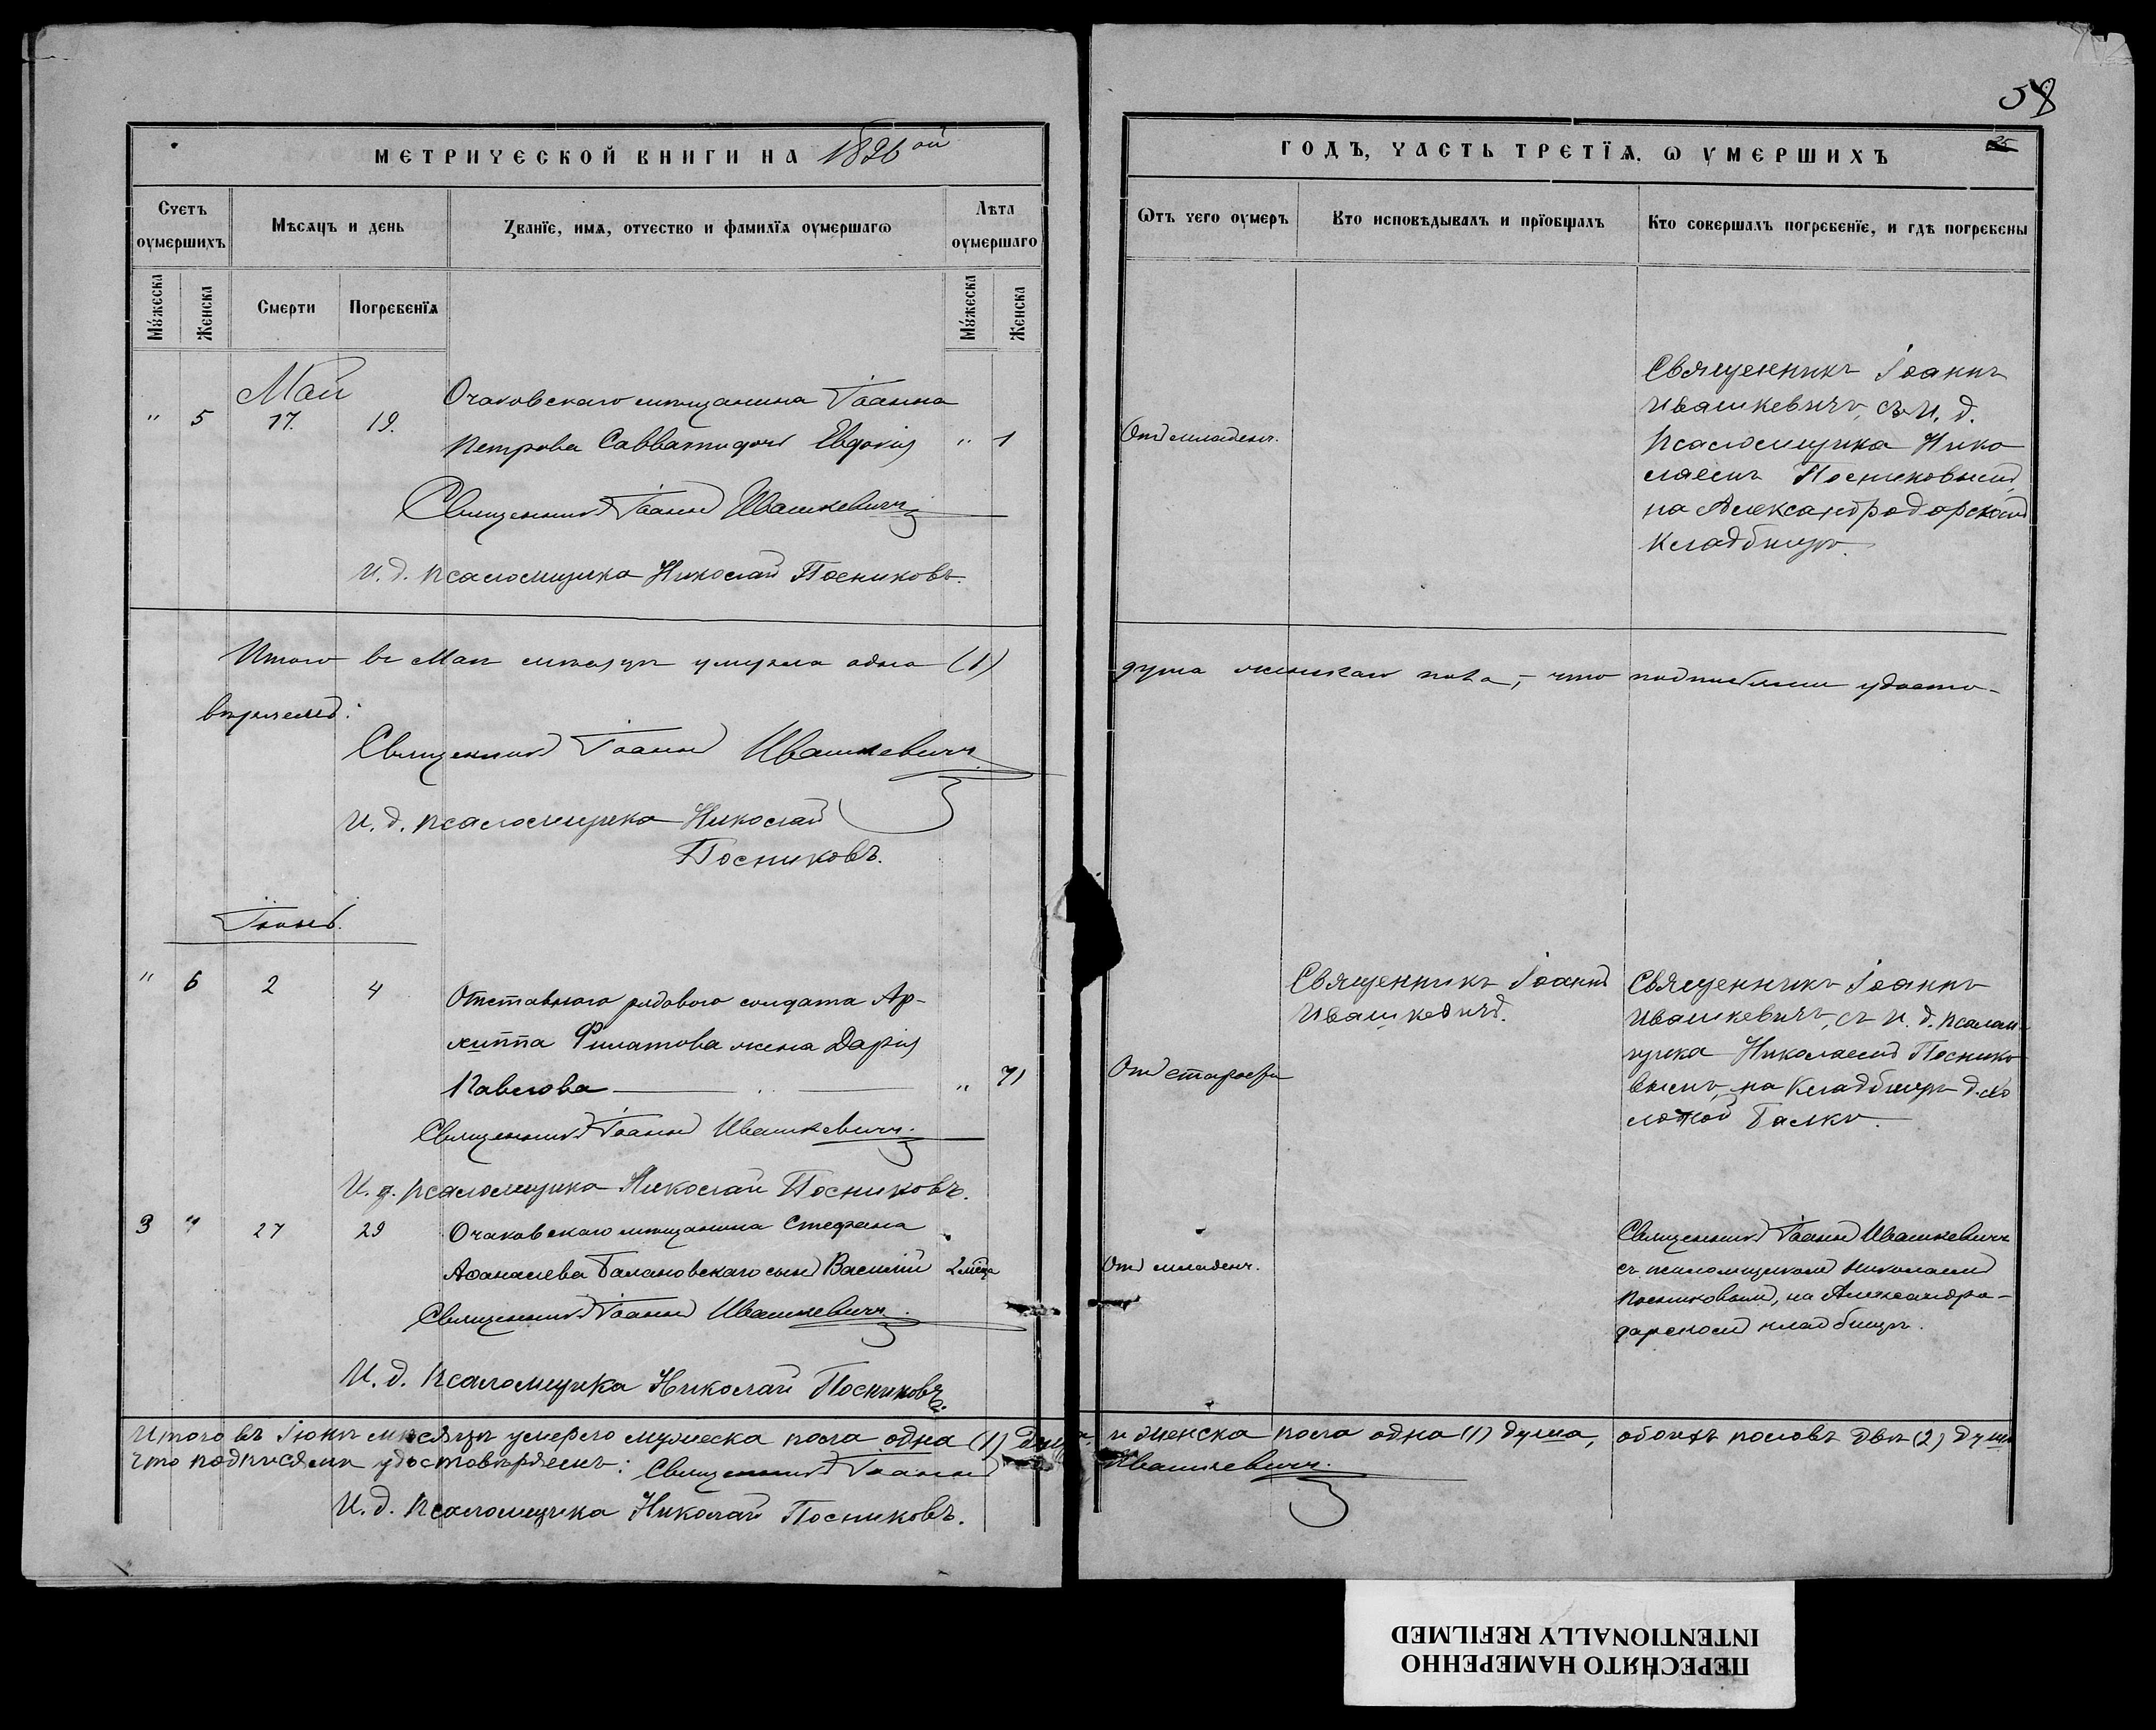 МЕТРИЧЕСКОЙ КНИГИ НА 1896ой
Счетъ оумершихъ
Мѣсяцъ и день
Званїе, имя, отчество и фамилїя оумершагѡ
Лѣта оумершаго
Мꙋжеска
Женска
Смерти
Погребенїя
Мꙋжеска
Женска
Май
" 5 17. 19.
Очаковскаго мѣщанина Іоанна
Петрова Саввати дочь Евдокія " 1
Священникъ Іоаннъ Ивашкевичъ
И. д. псаломщика Николай Посниковъ.
Итого въ Маѣ мѣсяцѣ умерла одна (1)
вѣряемъ:
Священникъ Іоаннъ Ивашкевичъ
И. д. псаломщика Николай
Посниковъ.
Іюнь.
" 6 2 4
Отставного рядового солдата Ар-
хиппа Филатова жена Дарія
Павлова " 71
Священникъ Іоаннъ Ивашкевичъ.
И. д. псаломщика Николай Посниковъ.
3 " 27 29 Очаковскаго мѣщанина Стефана
Аѳанасіева Балановскаго сынъ Василій 2 мѣсца
Священникъ Іоаннъ Ивашкевичъ.
И. д. Псаломщика Николай Посниковъ.
Итого въ Іюнѣ мѣсяцѣ умерло мужеска пола одна (1) душа
что подписями удостовѣряемъ: Священникъ Іоаннъ
И. д. Псаломщика Николай Посниковъ.
58
25
ГОДЪ, ЧАСТЬ ТРЕТЇЯ. Ѡ УМЕРШИХЪ
Ѿтъ чего оумеръ
Кто исповѣдывалъ и прїобщалъ
Кто совершалъ погребенїе, и гдѣ погребены
Отъ младенч.
Священникъ Іоаннъ
Ивашкевичъ, съ И. д.
Псаломщика Нико
лаемъ Посниковымъ,
на Александродарскомъ
Кладбищѣ.
душа женскаго пола, – что подписями удосто-
Отъ старости
Священникъ Іоаннъ
Ивашкевичъ.
Священникъ Іоаннъ
Ивашкевичъ, съ И. д. псалом-
щика Николаемъ Поснико
вымъ, на Кладбищѣ д.
Балки.
Отъ младенч.
Священникъ Іоаннъ Ивашкевичъ
съ псаломщикомъ Николаемъ
Посниковымъ, на Александро-
дарскомъ кладбищѣ.
и женска пола одна (1) душа, обоихъ половъ двѣ (2) души
Ивашкевичъ.
ПЕРЕСНЯТО НАМЕРЕННО
INTENTIONALLY REFILMED